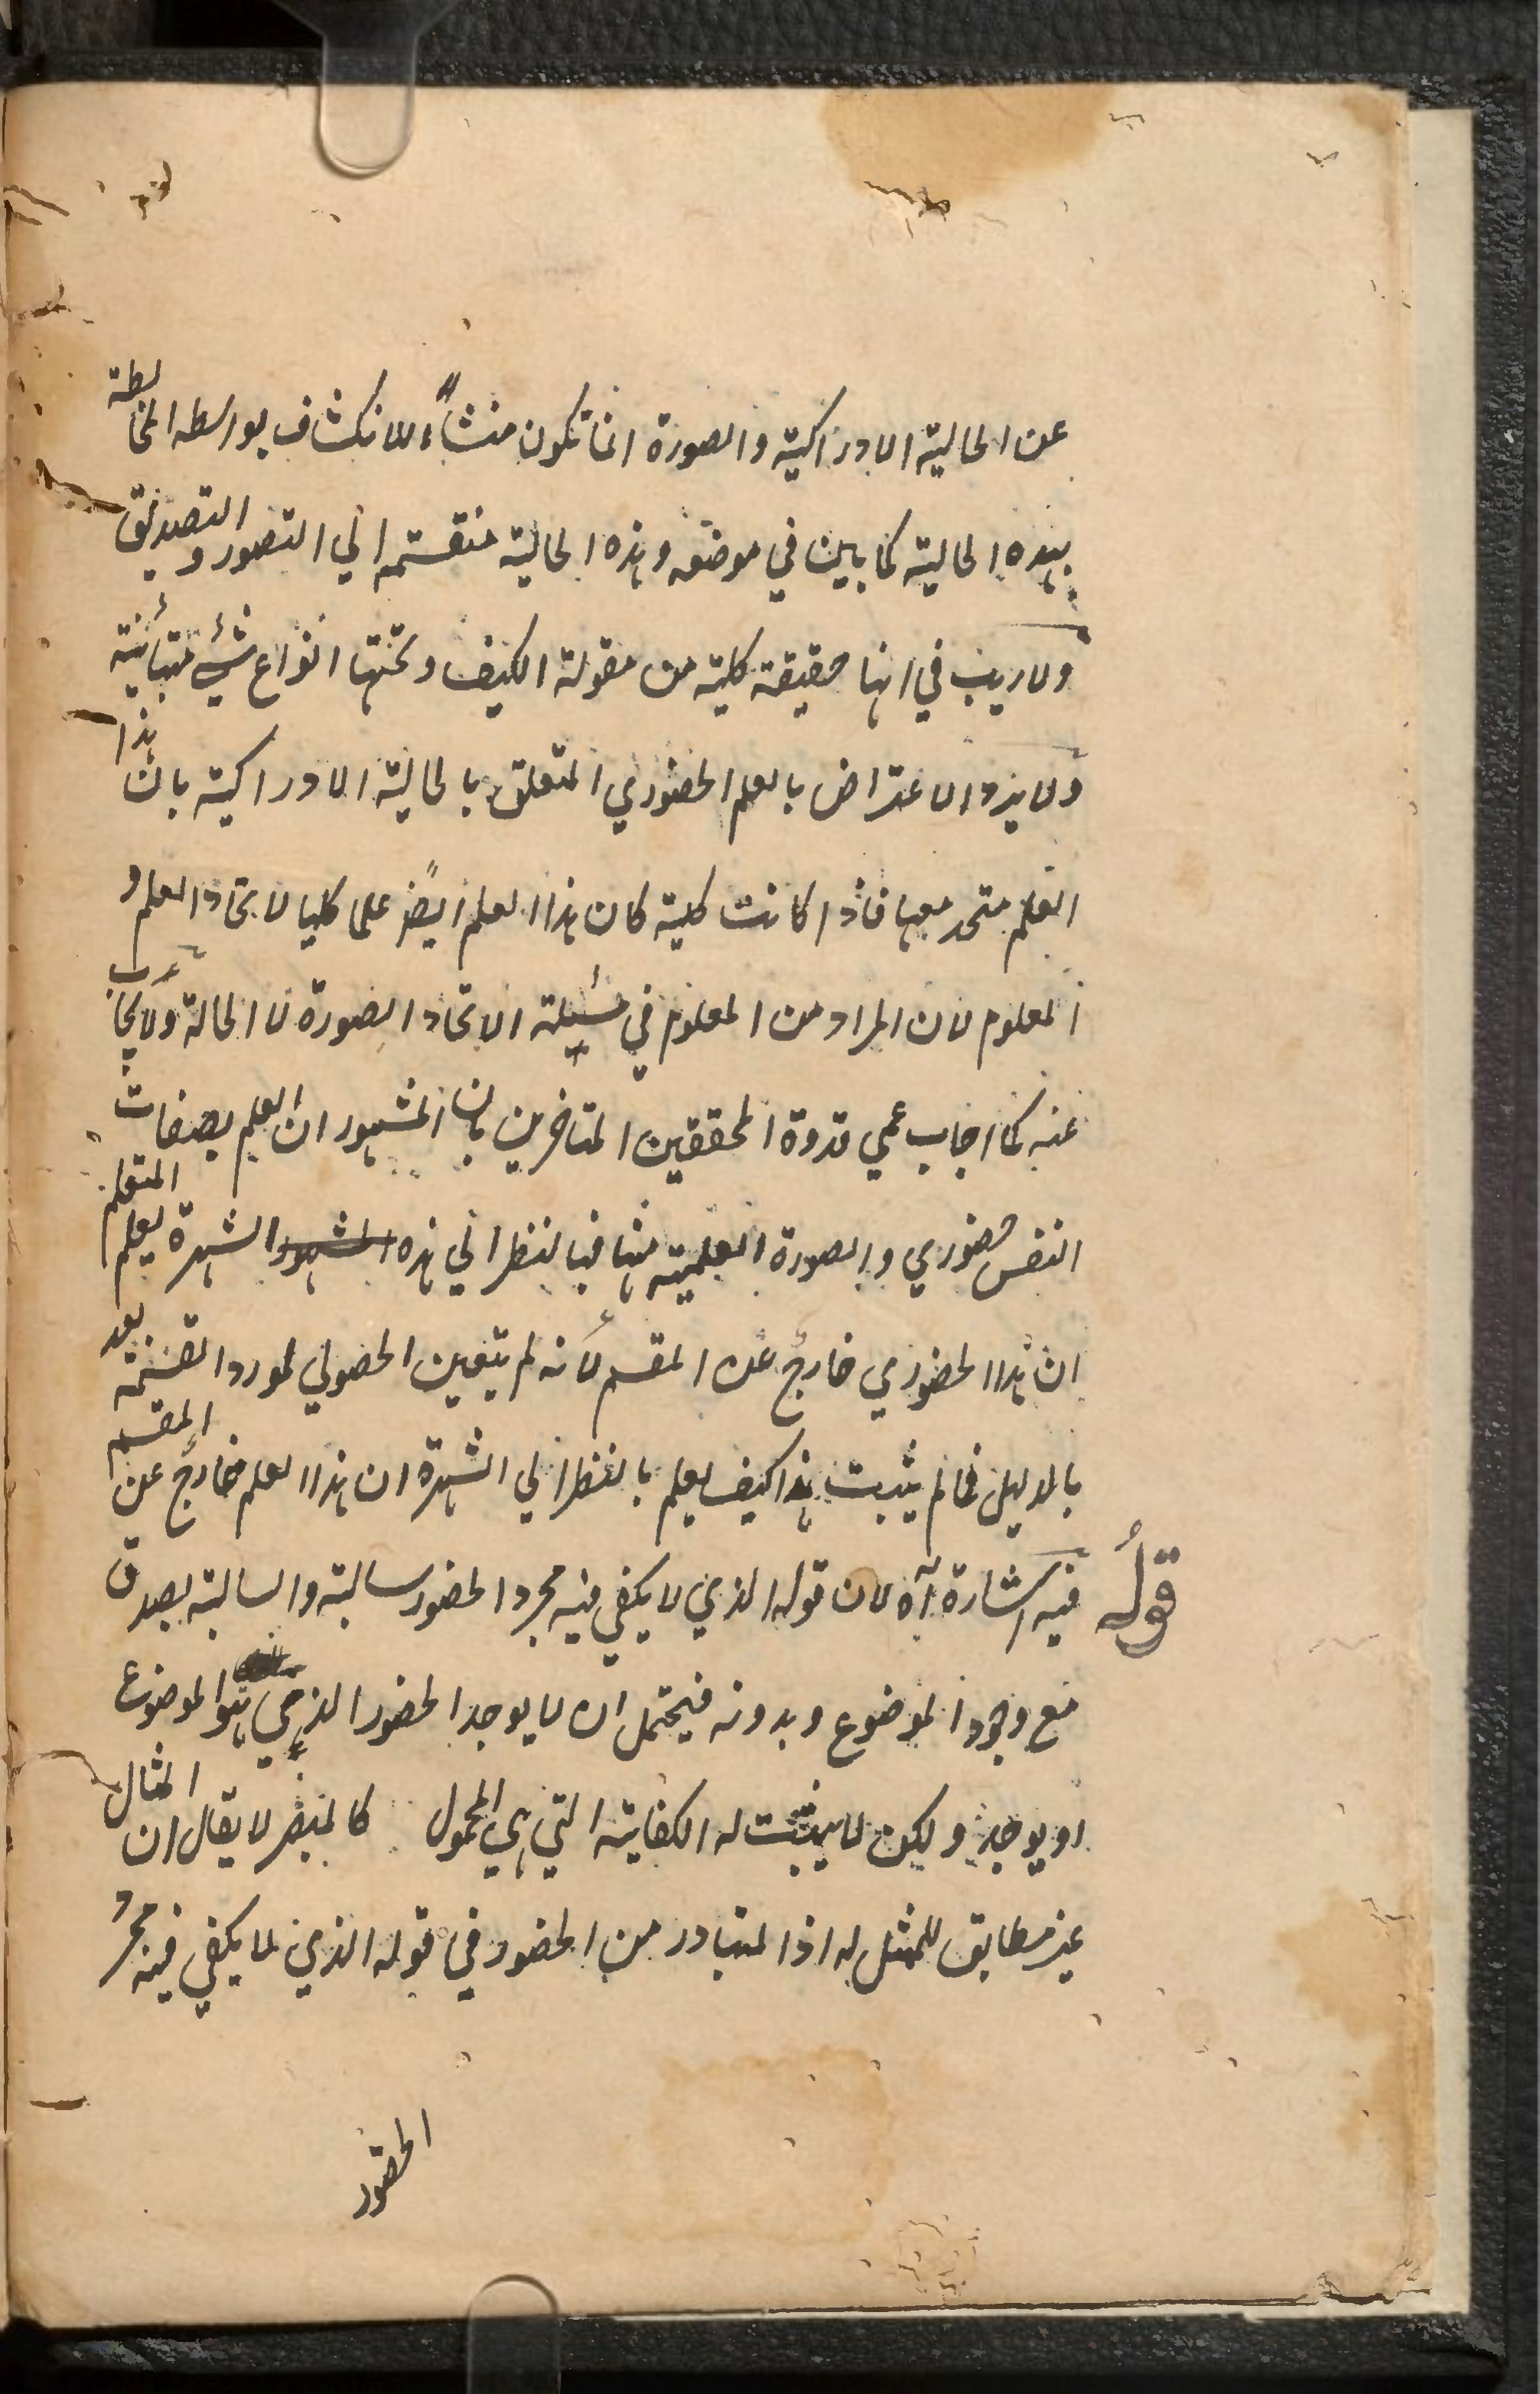 عن الحالية الادراكية والصورة انما تكون منشأء للانكشاف بواسطه المخالطة
بهذه الحالية كما بين في موضعه وهذه الحالية منقسمة الي التصور والتصديق
ولا ريب في انها حقيقة كلية من مقولة الكيف وتحتها انواع شيء متبائنة
ولا يرد الاعتراض بالعلم الحضوري المتعلق بالحالية الادراكية بان هذا
العلم متحد معها فاذا كانت كلية كان هذا العلم ايضً علما كليا لاتحاد العلم و
المعلوم لان المراد من المعلوم في مسئلة الاتحاد الصورة لا الحالة ولا يجاب
عنه كما اجاب عمي قدوة المحققين المتاخرين بان المشهور ان العلم بصفات
النفس حضوري والصورة العلمية منها فبالنظر الي هذه المشهور الشهرة يعلم المتعلم
ان هذا الحضوري خارج عن المقسم لانه لم يتعين الحصولي لمورد القسمة بعد
بالدليل فما لم يثبت هذا كيف يعلم بالنظر الي الشهرة ان هذا العلم خارج عن المقسم
قوله فيه اشارة آه لان قوله الذي لا يكفي فيه مجرد الحضور سالبة والسالبة يصدق
مع وجود الموضوع وبدونه فيحتمل ان لا يوجد الحضور الذي هو الموضوع
او يوجد ولكن لا يثبت له الكفاية التي هي المحمول كالمبصر لا يقال ان المثال
غير مطابق للممثل له اذ المتبادر من الحضور في قوله الذي لا يكفي فيه مجرد
الحضور